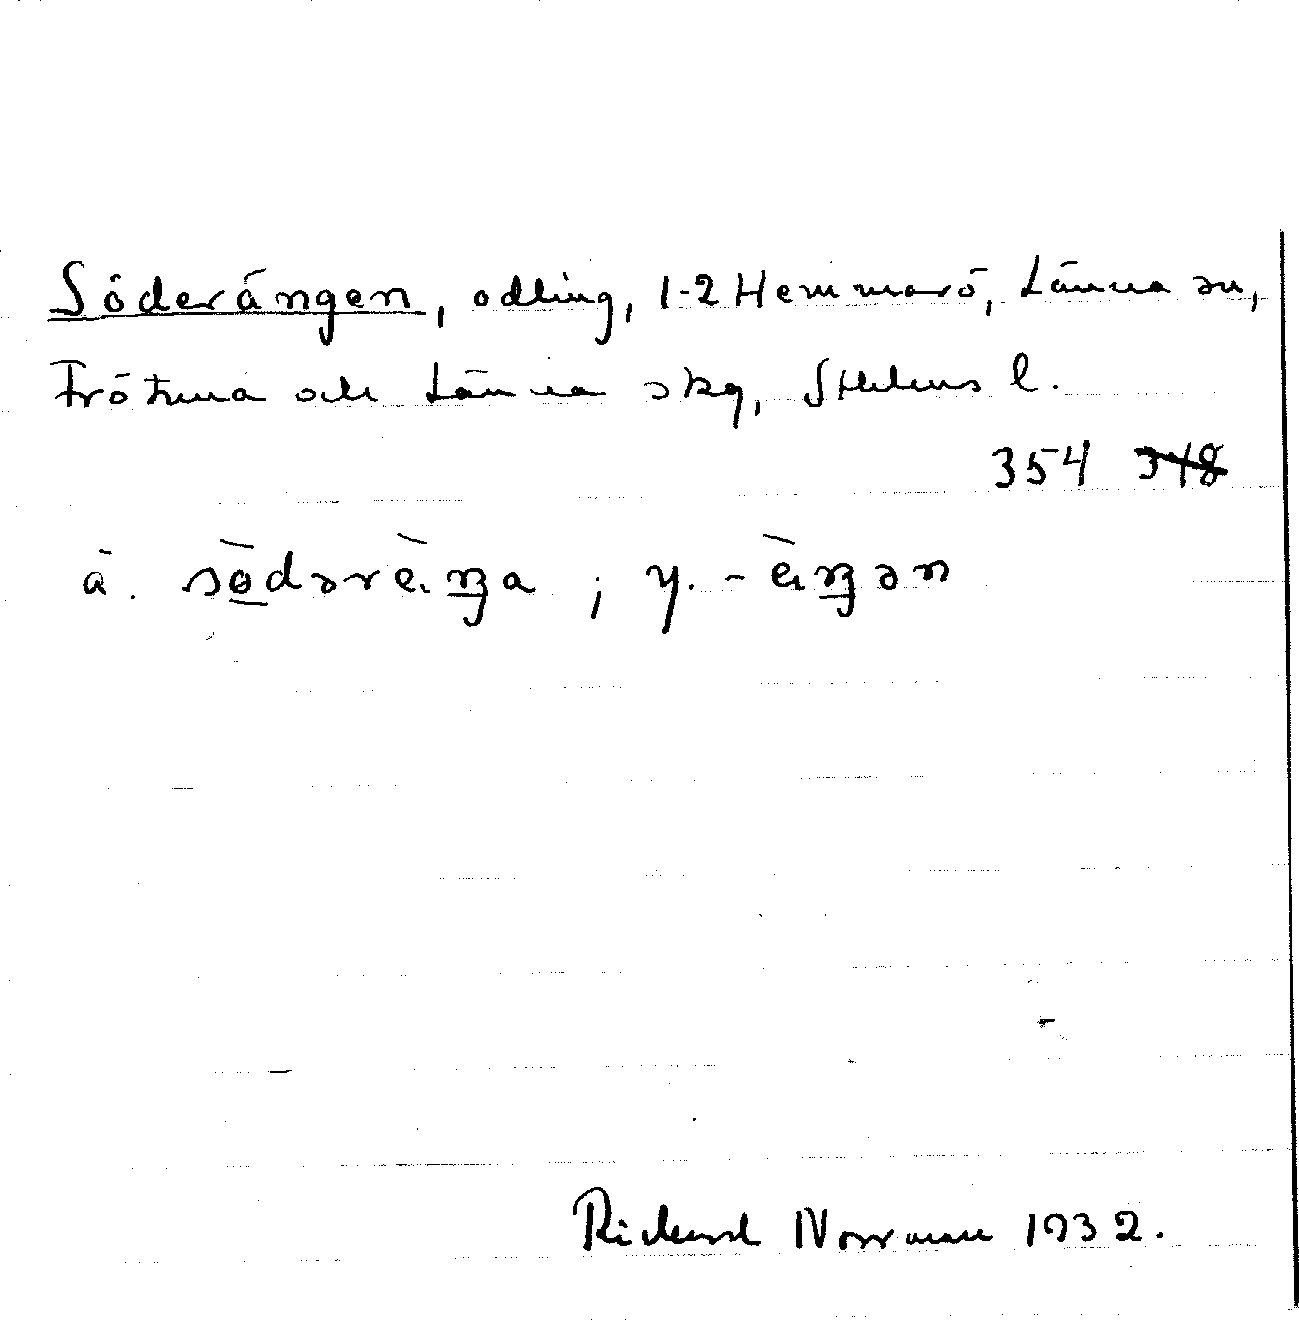 Söderängen, odling, 1-2 Hemmarö, Länna sn,
Frötuna och Länna skg, Sthlms l.
354 ~~348~~
ä. söderèŋa ; y. -èŋən
Rickard Norrman 1932.